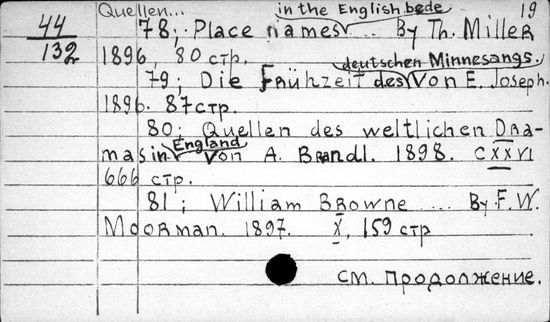 Quellen... in the English bede 19
44 78; Place names ... By Th. Miller
132 1896, 80 стр. deutschen Minnesangs.
79; Die Frühzeit des Von E. Joseph.
1896. 87 стр.
80; Quellen des weltlichen Dra-
mas in England Von A. Brandl. 1898. CXXVI
666 стр.
81; William Browne ... By F. W.
Moorman. 1897. X, 159 стр
см. продолжение.